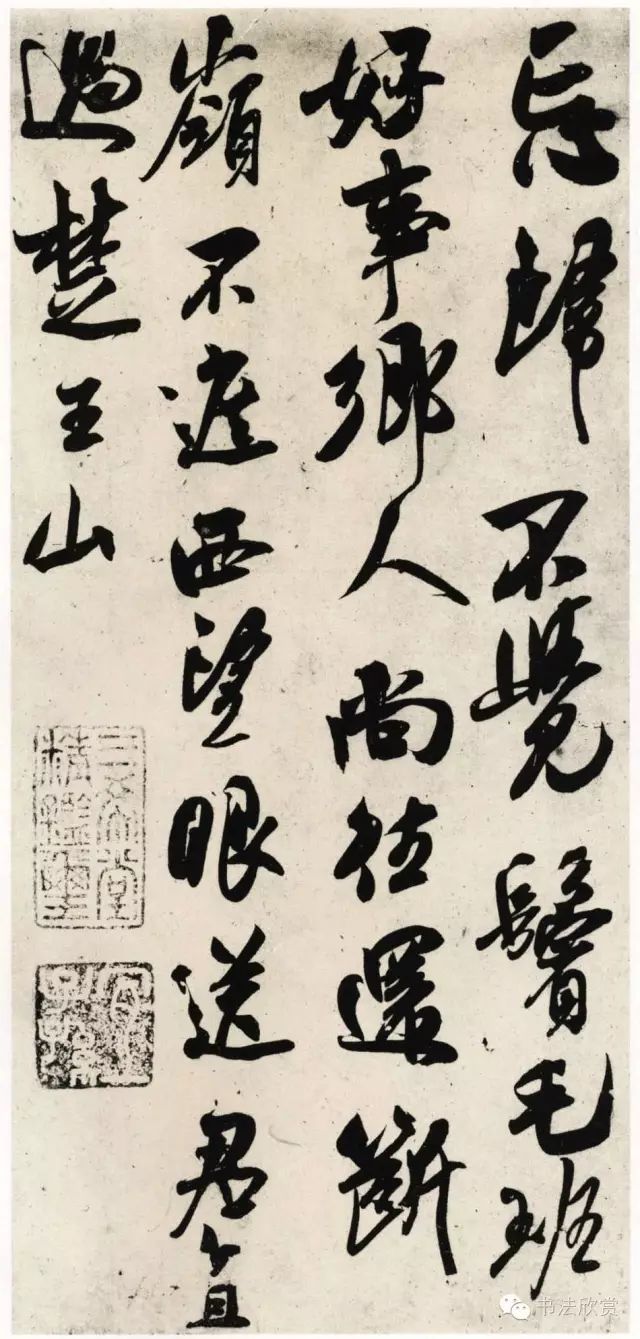 忘歸不覺鬢毛班
好事鄉人尚往還斷
嶺不遮西望眼送君直
過楚王山
三希堂
精鑑璽
宜子孫
书法欣赏